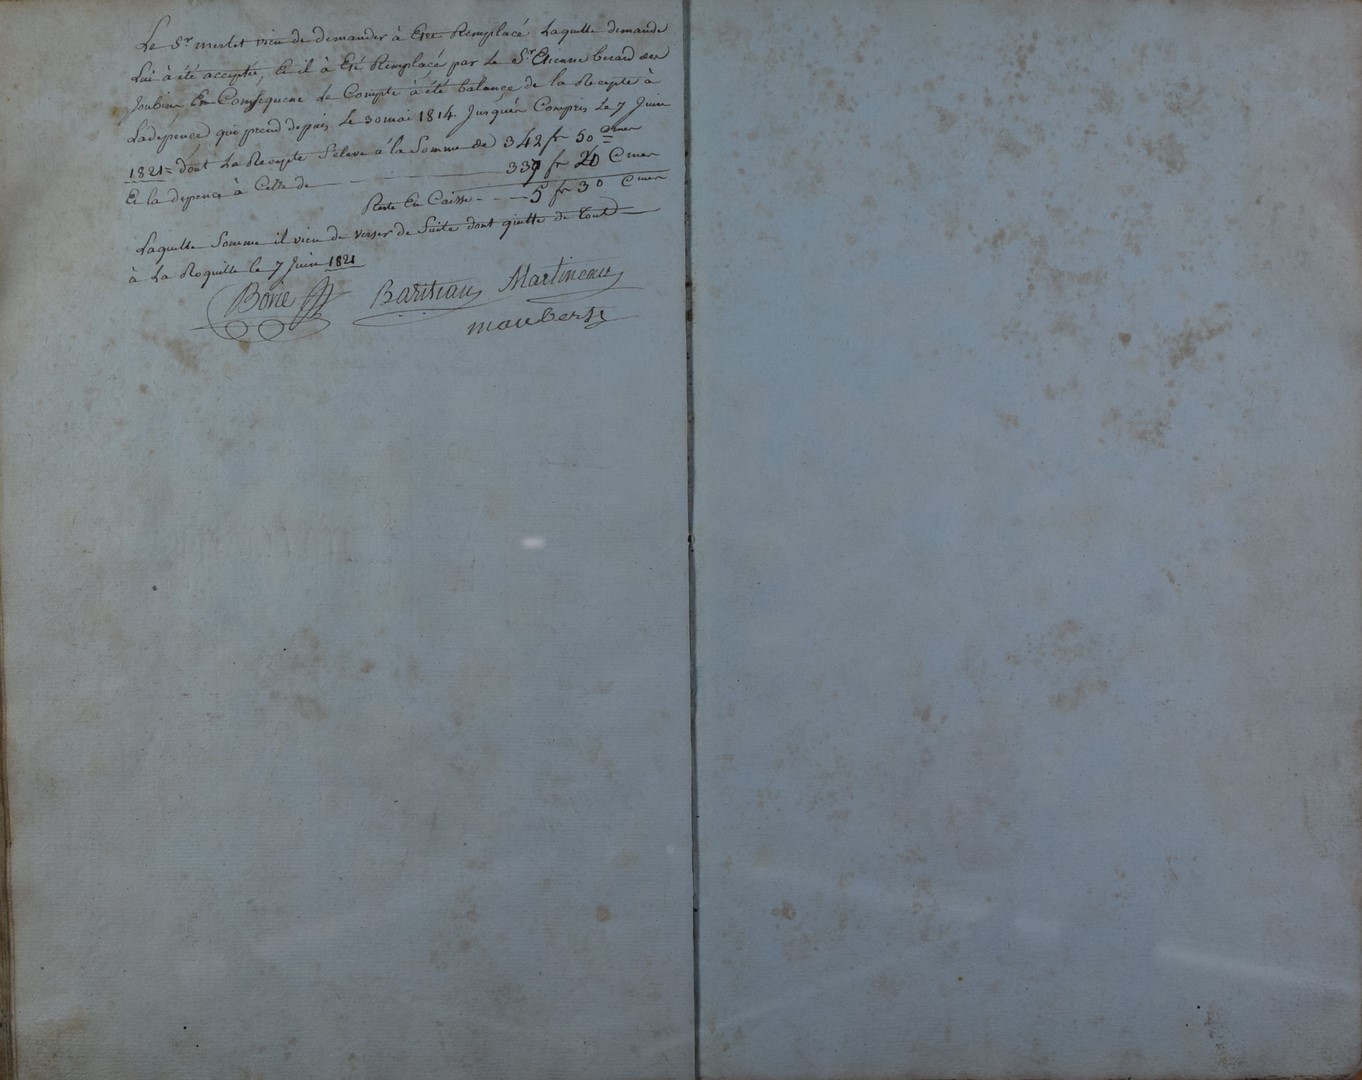 Le Sr merlet vien de demander à Etre Remplacé Laquelle demande
Lui à été acceptée, Et il à Eté Remplacé par Le Sr Etienne berard
Joubin En Consequene Le Compte à été balancé de la Recepte à
Ladépence qui prend depuis Le 30 mai 1814. Jusqu'en Compris Le 7 Juin
1821 = dont La Recepte S'eleve à la Somme de 342 fr 50 Cmes
Et la depence à Celle de 337 fr 20 Cmes
Reste En Caisse - - - 5 fr 30 Cmes
Laquelle Somme il vien de verser de Suite dont quitte de tout
à La Roquille le 7 Juin 1821
Borie Bariteau Martineau
mauberty